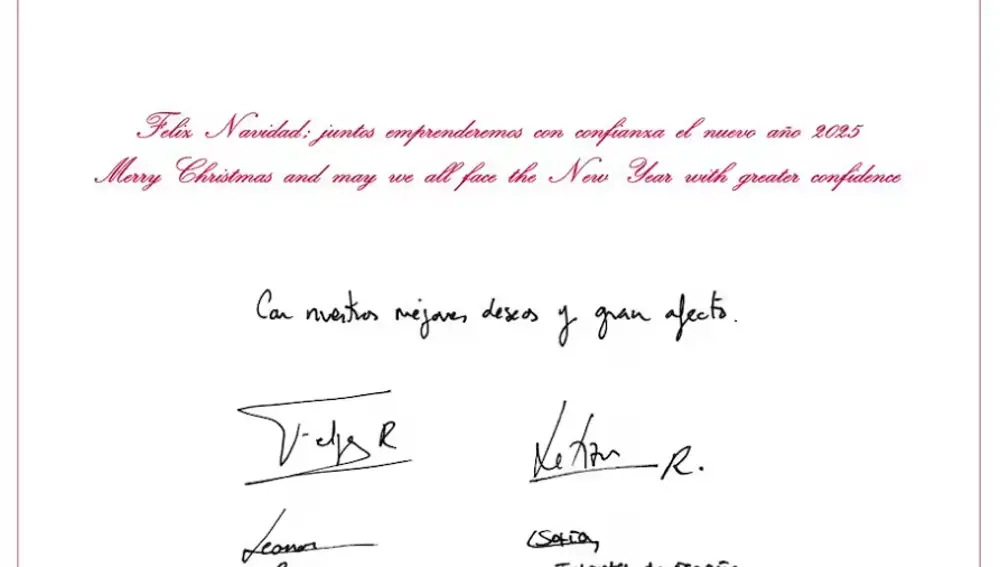 Feliz Navidad; juntos emprenderemos con confianza el nuevo año 2025
Merry Christmas and may we all face the New Year with greater confidence
Con nuestros mejores deseos y gran afecto.
Felipe R
Letizia R.
Leonor
Sofía,